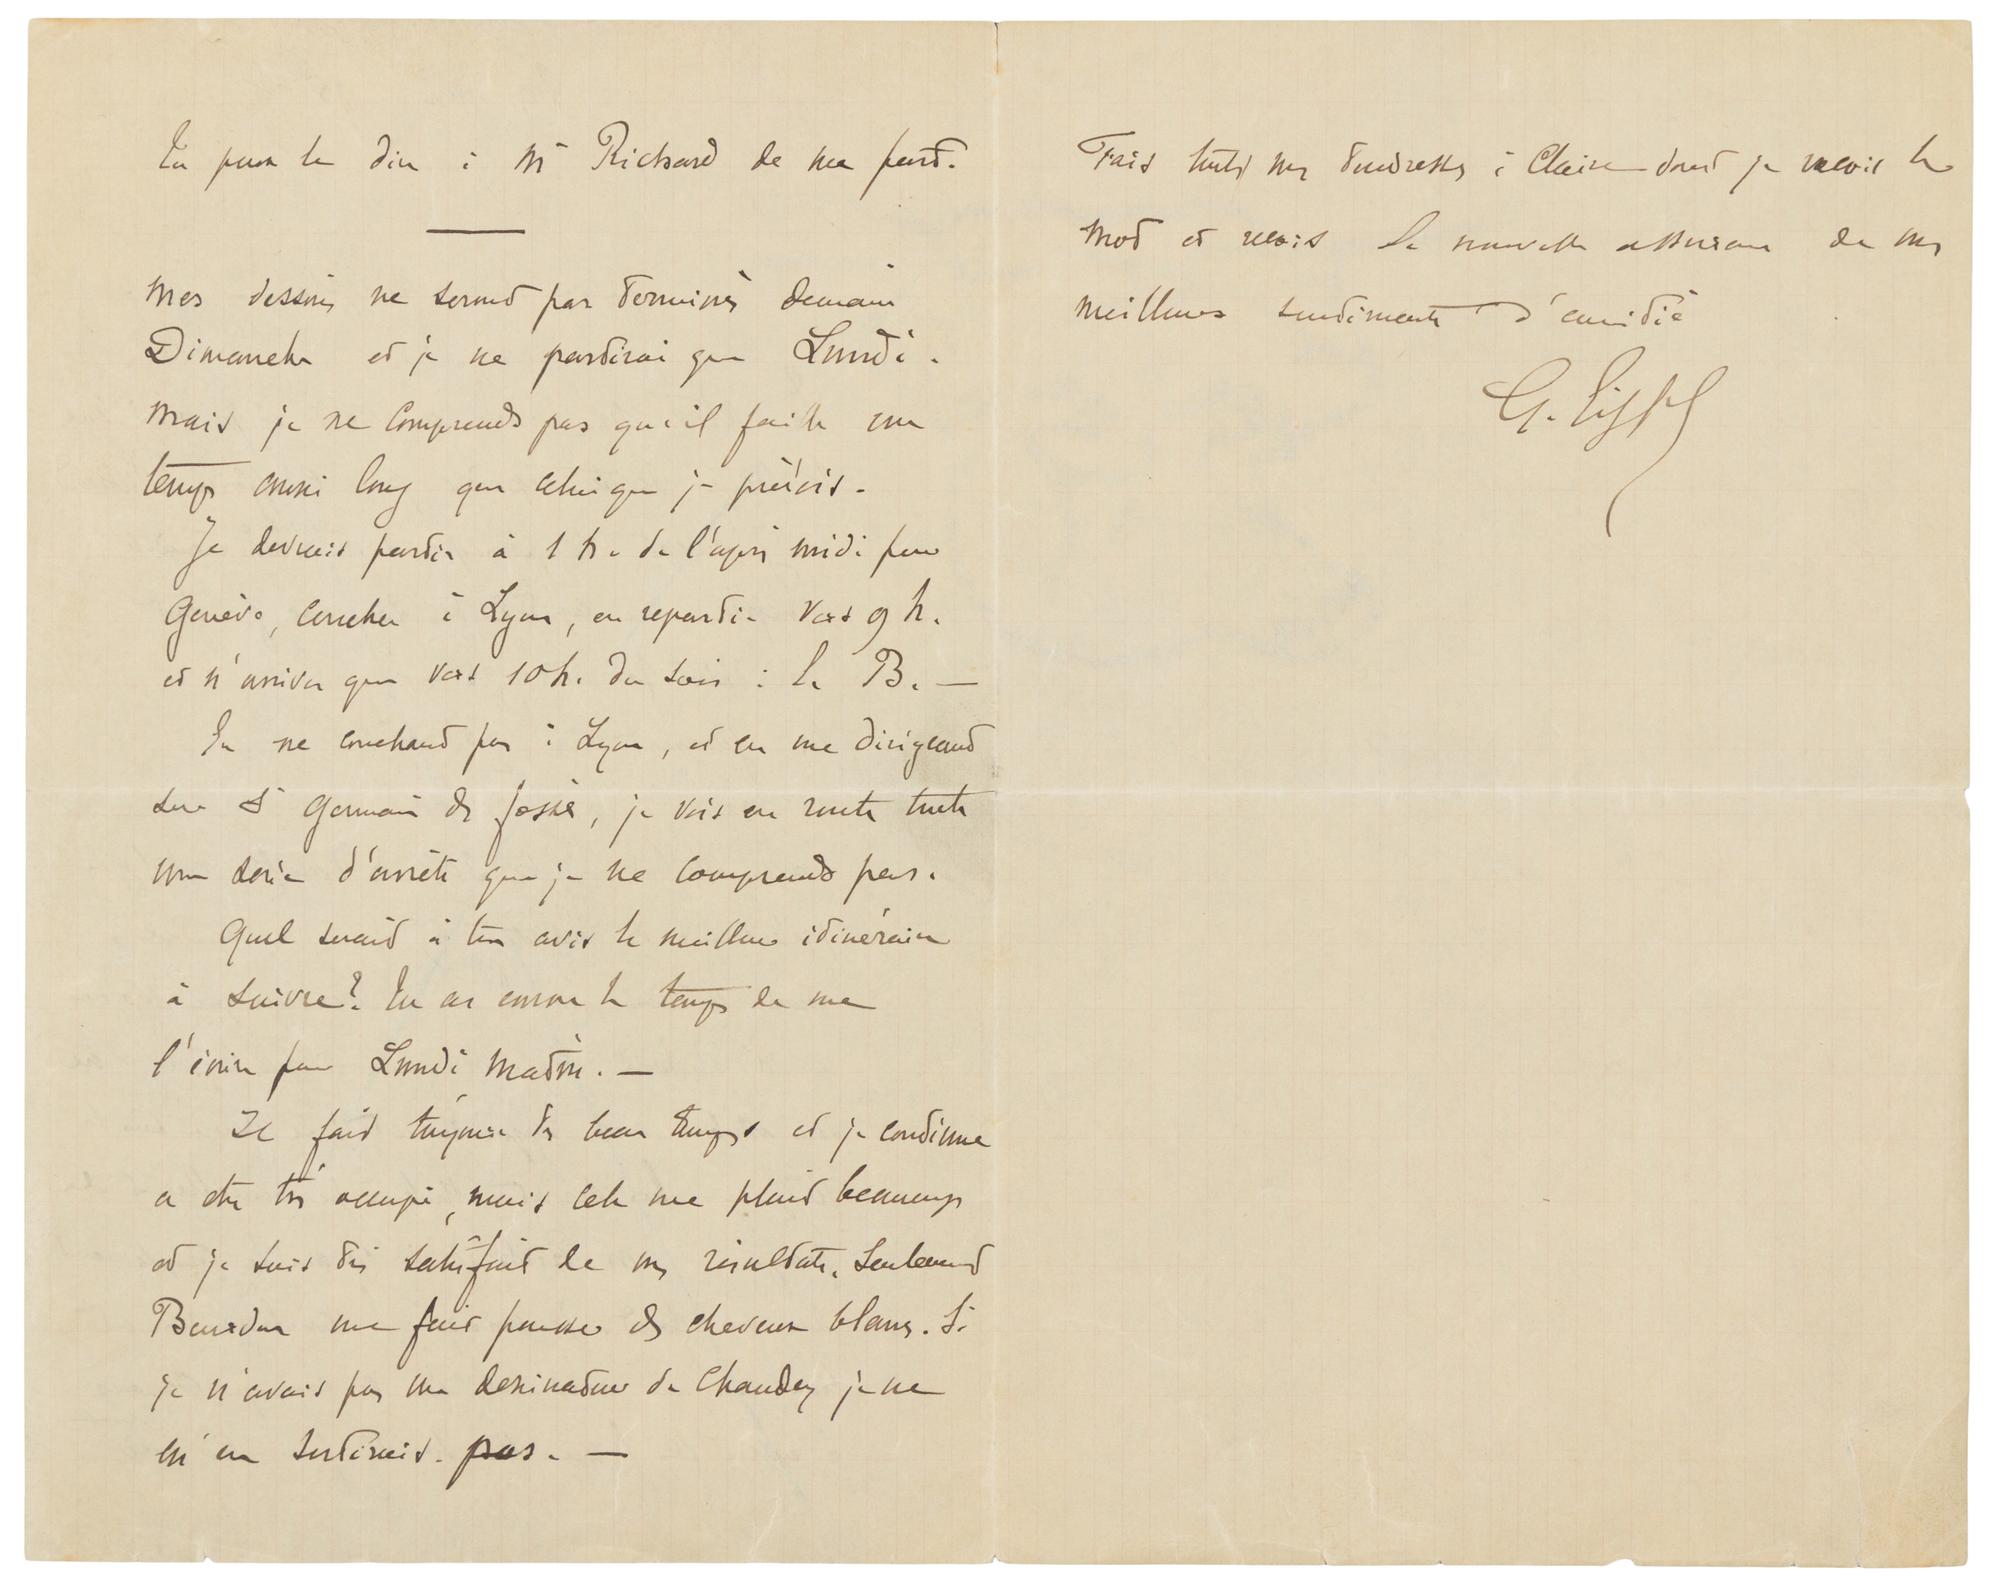 Tu peux le dire à Mr Richard de ma part.
Mes dessins ne seront pas terminés demain
Dimanche et je ne partirai que Lundi.
Mais je ne comprends pas qu'il faille un
temps aussi long que celui que je prévois.
Je devrais partir à 1 h. de l'après midi pour
Genève, coucher à Lyon, en repartir vers 9 h.
et n'arriver que vers 10 h. du soir à la B. —
En ne couchant pas à Lyon, et en me dirigeant
sur St Germain des fossés, je vois en route toute
une série d'arrêts que je ne comprends pas.
Quel serait à ton avis le meilleur itinéraire
à suivre? Tu as encore le temps de me
l'écrire pour Lundi matin. —
Il fait toujours des beau temps et je continue
a être très occupé, mais cela me plait beaucoup
et je suis très satisfait de mes résultats. Seulement
Bourdon me fait pousser des cheveux blancs. Si
je n'avais pas un dessinateur de Chaudey je ne
m'en sortirais pas. —
Fais toutes mes tendresses à Claire dont je reçois le
mot et reçois la nouvelle assurance de mes
meilleurs sentiments d'amitié
G. Eiffel